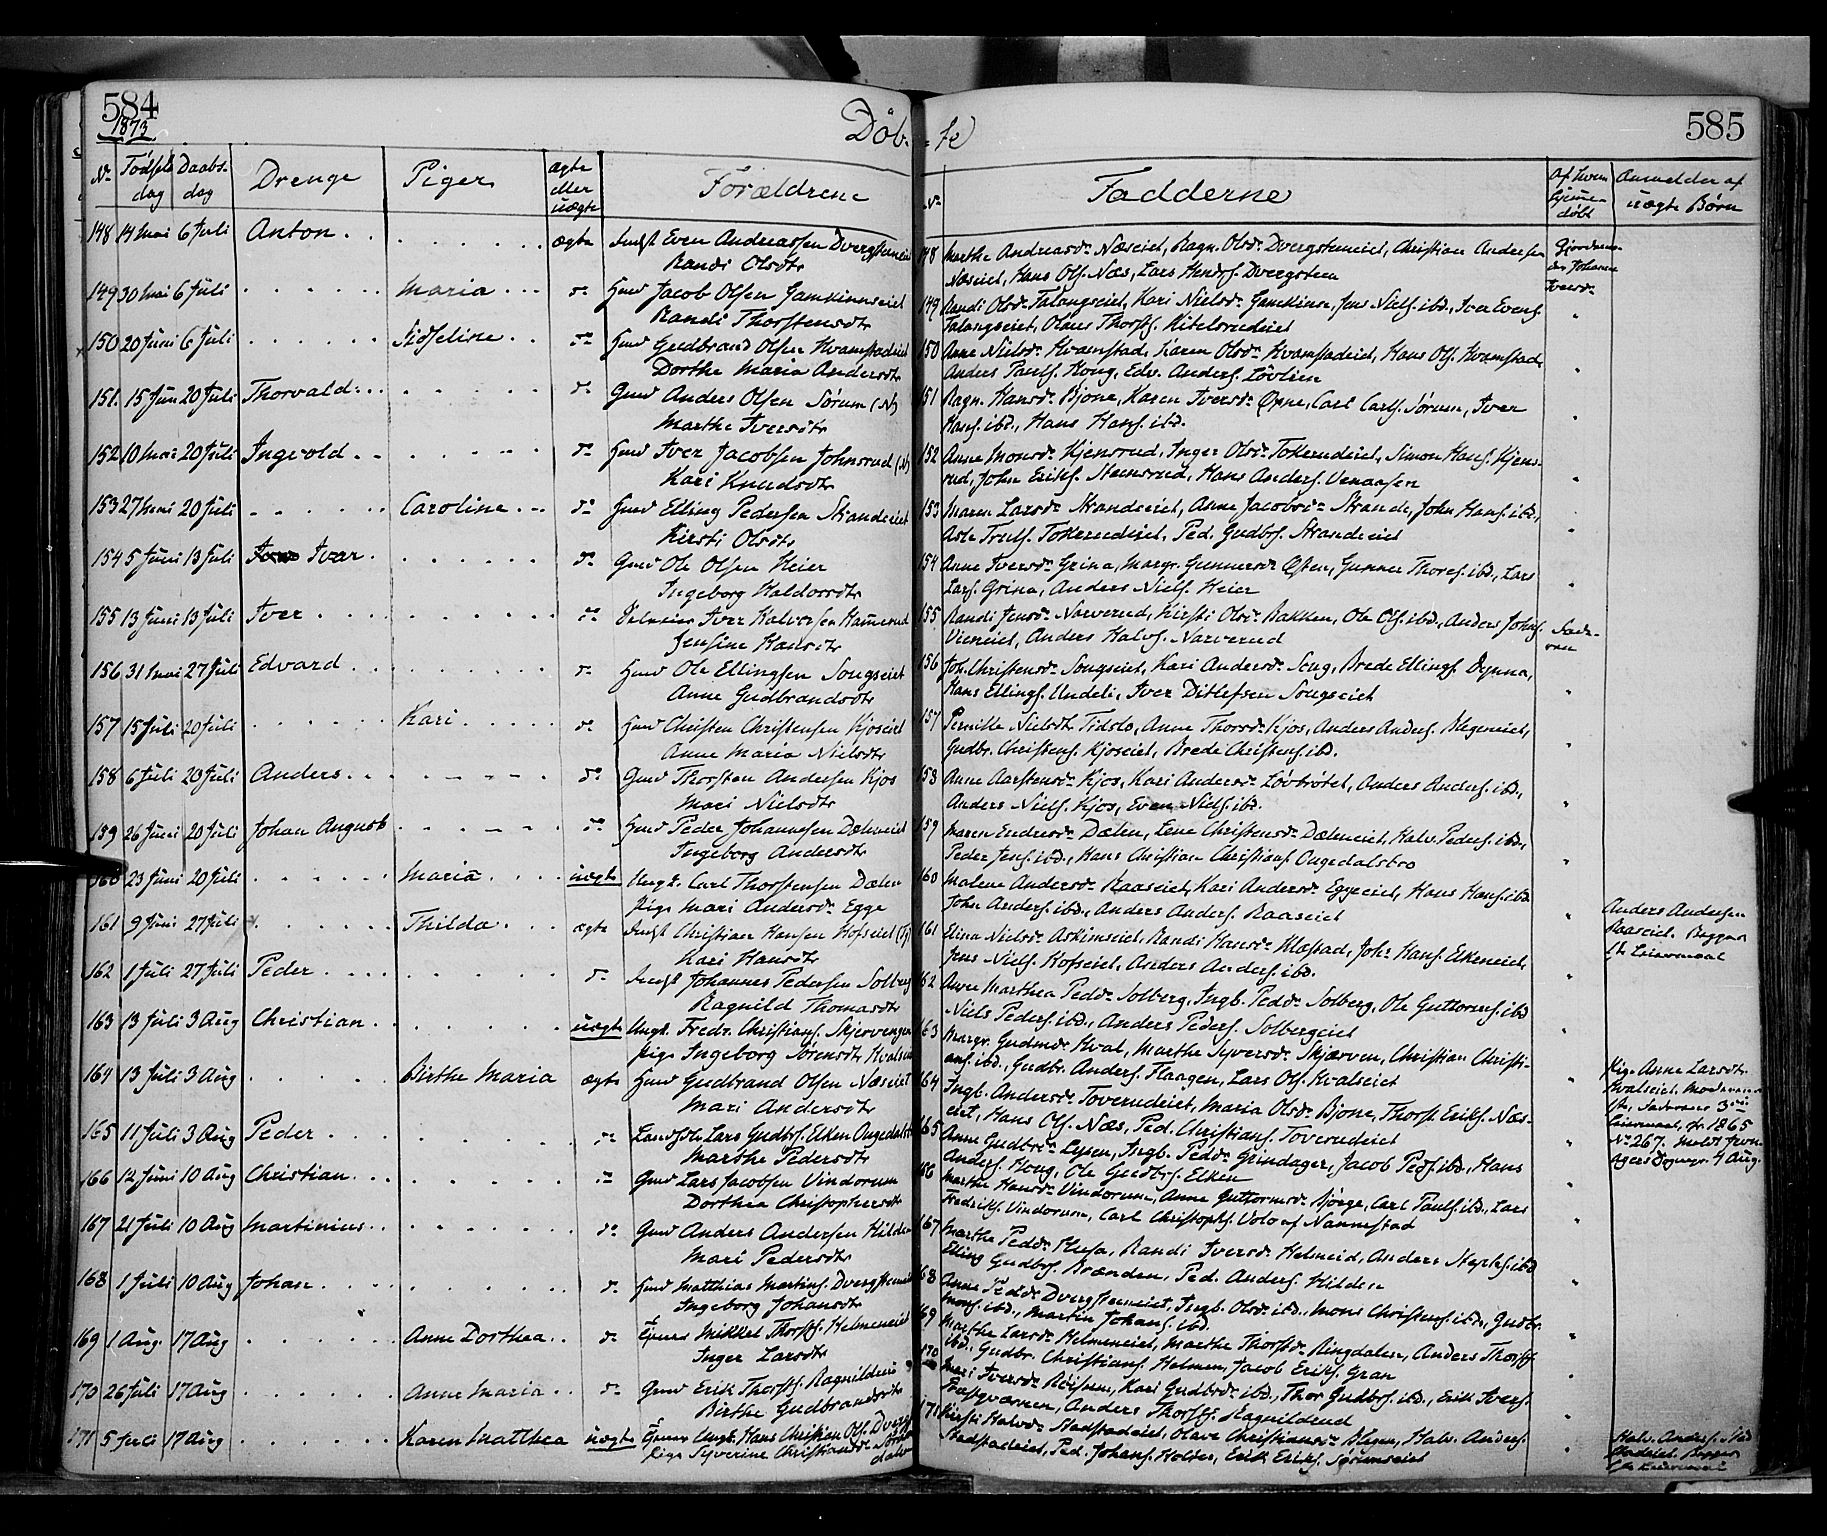 584
1873
Døb-
No Fødsels dag Daabs- dag Drenge Piger ægte eller uægte Forældrene
148 14 Mai 6 Juli Anton ægte Indst Even Andreassen Dvergsteneiet
Randi Olsdtr
149 30 Mai 6 Juli Maria do Hmd Jacob Olsen Gamkinneiet
Randi Thorstensdtr
150 20 Juni 6 Juli Sidseline do Hmd Gudbrand Olsen Kvamstadeiet
Dorthe Maria Andersdtr
151. 15 Juni 20 Juli Thorvald do Gmd Anders Olsen Sørum (N)
Marthe Iversdtr
152 10 Mai 20 Juli Ingvold do Hmd Iver Jacobsen Johnsrud (N)
Kari Knudsdtr
153 27 Mai 20 Juli Caroline do Hmd Elling Pedersen Strandeiet
Kirsti Olsdtr
154 5 Juni 13 Juli Ivar do Gmd Ole Olsen Heier
Ingeborg Haldorsdtr
155 13 Juni 13 Juli Iver do Iver Halvorsen Hammerud
Jensine Hansdtr
156 31 Mai 27 Juli Edvard do Hmd Ole Ellingsen Songseiet
Anne Gudbrandsdtr
157 15 Juli 20 Juli Kari do Hmd Christen Christensen Kjoseiet
Anne Maria Nielsdtr
158 6 Juli 20 Juli Anders do Gmd Thorsten Andersen Kjos
Mari Nielsdtr
159 26 Juni 20 Juli Johan August do Hmd Peder Johannesen Dæleneiet
Ingeborg Andersdtr
160 23 Juni 20 Juli Maria uægte Ungk. Carl Thorstensen Dælen
Pige Mari Andersdr Egge
161 9 Juni 27 Juli Thilda ægte Indst Christian Hansen Hofseiet
Kari Hansdtr
162 1 Juli 27 Juli Peder do Indst Johannes Pedersen Solberg
Ragnild Thomasdtr
163 13 Juli 3 Aug Christian uægte Ungk. Fredr. Christians. Skjervengen
Pige Ingeborg Sørensdtr Hvalseiet
164 13 Juli 3 Aug Birthe Maria ægte Hmd Gudbrand Olsen Næseiet
Mari Andersdtr
165 11 Juli 3 Aug Peder do Lars Gudbrs. Elken Ongedalstro
Marthe Pedersdtr
166 12 Juni 10 Aug Christian do Gmd Lars Jacobsen Vindorum
Dorthea Christophersdtr
167 21 Juli 10 Aug Martinius do Gmd Anders Andersen Hilden
Mari Pedersdtr
168 1 Juli 10 Aug Johan do Hmd Matthias Martins. Dvergsteneiet
Ingeborg Johansdtr
169 1 Aug. 17 Aug Anne Dorthea do Mikkel Thorsts. Helmeneiet
Inger Larsdtr
170 26 Juli 17 Aug Anne Maria do Gmd Erik Thorsts. Ragnildrud
Birthe Gudbrandsdtr
171 5 Juli 17 Aug Karen Matthea uægte Ungk. Hans Christian Ols. Dvergst
Pige Syverine Christiansdr
585
te
No Fadderne Af hvem hjemmedøbt Anmelder af uægte Børn
148 Marthe Andreasdr Næseiet, Ragn. Olsdr Dvergsteneiet, Christian Andersen
Næseiet, Hans Ols. Næs, Lars Hendrs. Dvergsten
149 Randi Olsdr Falangseiet, Kari Nielsdr Gamkinn, Jens Niels. ibd., Iver Evens.
Falangseiet, Olaus Thorsts. Kitelsrudeiet
150 Anne Nielsdr Kvamstad, Karen Olsdr Kvamstadeiet, Hans Ols. Kvamstad,
Anders Pauls. Houg, Edv. Anders. Løvlien
151 Ragn. Hansdr Bjone, Karen Iversdr Øpne, Carl Carls. Sørum, Iver
Hans. ibd., Hans Hans. ibd.
152 Anne Monsdr Kjensrud, Inger Olsdr Tokerudeiet, Simon Hans. Kjens-
rud, John Eriks. Steinsrud, Hans Anders. Venaasen
153 Maren Larsdr Strandeiet, Anne Jacobsdr Strande, John Hans. ibd.,
Asle Truls. Tokerudeiet, Ped. Gudbrs. Strandeiet
154 Anne Iversdr Grina, Margr. Gunnersdr Østen, Gunner Thores. ibd., Lars
Lars. Grina, Anders Niels. Heier
155 Randi Jensdr Narverud, Kirsti Olsdr Bakken, Ole Ols. ibd., Anders Johs.
Vieneiet, Anders Halvs. Narverud
156 Joh. Christensdr Songseiet, Kari Andersdr Song, Brede Ellings. Dynna,
Hans Ellings. Undeli, Iver Ditlefsen Songseiet
157 Pernille Nielsdtr Tidslo, Anne Thorsdr Kjos, Anders Anders. Blegeneiet,
Gudbr. Christens. Kjoseiet, Brede Christens. ibd.
158 Anne Aarstensdr Kjos, Kari Andersdr Løvbrøtet, Anders Anders. ibd.,
Anders Niels. Kjos, Even Niels. ibd.
159 Maren Endresdr Dælen, Lene Christensdr Dæleneiet, Halv. Peders. ibd.,
Peder Jens. ibd., Hans Christian Christians. Ongedalstro
160 Malene Andersdr Raaseiet, Kari Andersdr Eggeeiet, Hans Hans. ibd.
John Anders. ibd., Anders Anders. Raaseiet
Anders Andersen
Raaseiet. Begges
1ste Leiermaal
161 Elina Nielsdr Askimseiet, Randi Hansdr Klæstad, Johs Hans. Ekeneiet,
Jens Niels. Hofseiet, Anders Anders. ibd.
162 Anne Marthea Pedsdr Solberg, Ingb. Pedsdr Solberg, Ole Guttorms. ibd
Niels Peders. ibd., Anders Peders. Solbergeiet
163 Margr. Gudmdr Hval, Marthe Syversdr Skjærven, Christian Christi-
ans. ibd., Gudbr. Anders. Flaagen, Lars Ols. Hvalseiet
Pige Anne Larsdtr
Hvalseiet. Moderens
1ste, Faderens 3die
Leiermaal, fr. 1865
No 267.
164 Ingb. Andersdr Toverudeiet, Maria Olsdr Bjone, Thorst. Eriks. Næs-
eiet, Hans Ols. Næs, Ped. Christians. Toverudeiet
165 Anne Gudbrsdr Lysen, Ingb. Pedsdr Grindager, Jacob Peds. ibd., Hans
Anders. Houg, Ole Gudbrs. Elken
166 Marthe Hansdr Vindorum, Anne Guttormsdr Bjørge, Carl Pauls. ibd., Lars
Fredriks. Vindorum, Carl Christophs. Vold af Nannestad
167 Marthe Pedsdr Flesa, Randi Iversdr Helmeid, Anders ibd
Elling Gudbrs. Brænden, Ped. Anders. Hilden
168 Anne Pedsdr Dvergsteneiet, Ingb. Olsdr ibd., Mons Christens. ibd., Gudbr.
Mons. ibd., Martin Johans. ibd.
169 Marthe Larsdr Helmeneiet, Marthe Thorstdr Ringdalen, Anders Thorsts.
ibd., Gudbr. Christians. Helmen, Jacob Eriks. Gran
170 Mari Iversdr Røisum, Kari Gudbrsdr ibd., Thor Gudbrs. ibd., Erik Ivers.
Anders Thorsts. Ragnildrud
171 Kirsti Halvdr Stadstadeiet, Olave Christiansdr Blegen, Halv. Anders.
Stadstadeiet, Ped. Johans. Holter, Erik Eriks. Sørumseiet